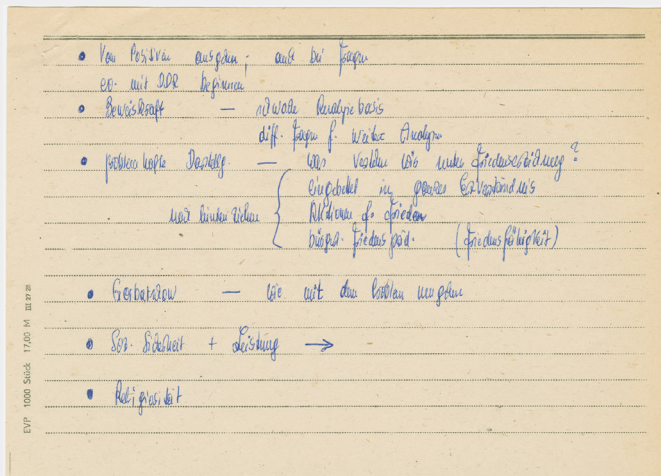 • Vom Positiven ausgehen; auch bei Fragen
ev. mit DDR beginnen
• Beweiskraft — schwache Analysebasis
diff. Fragen f. weitere Analysen
• problemhafte Darstellg. — Was verstehen wir unter Friedenserziehung?
eingebettet in ganzes Erz.verständnis
mit einbeziehen { Aktionen f. Frieden
bürgerl. Friedenspäd. (Friedensfähigkeit)
• Gorbatschow — wie mit dem Problem umgehen
• Soz. Sicherheit + Leistung → -
• Religiosität
EVP 1000 Stück 17,00 M III